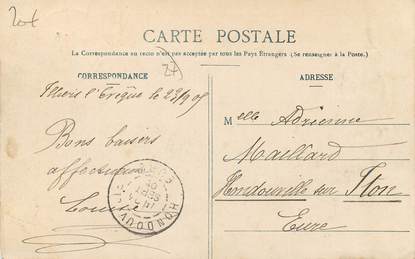 20€
CARTE POSTALE
La Correspondance au recto n'est pas acceptée par tous les Pays Etrangers (Se renseigner à la Poste.)
CORRESPONDANCE
ADRESSE
Illiers l'Evêque le 23/9 05
Bons baisers
affectueux
Louise
Melle Adrienne
Maillard
Hondouville sur Iton
Eure
HONDOUVILLE